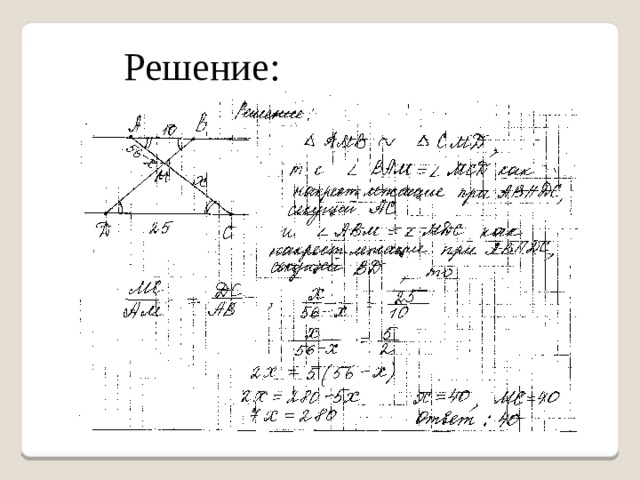 Решение:
Решение:
A 10 B
56-x
M x
D 25 C
△ AMB ~ △ CMD,
т с ∠ BAM = ∠ MCD как
накрест лежащие при AB||DC,
секущей AC
и ∠ ABM = ∠ MDC как
накрест лежащие при AB||DC,
секущей BD, то
MC/AM = DC/AB, x/56-x = 25/10
x/56-x = 5/2
2x = 5(56-x)
2x = 280-5x
7x = 280
x = 40, MC=40
Ответ: 40